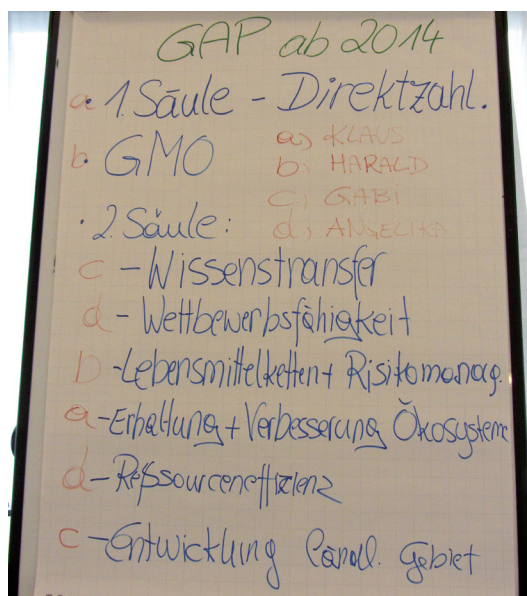 GAP ab 2014
a • 1. Säule - Direktzahl.
b • GMO
a) KLAUS
b) HARALD
c) GABI
d) ANGELIKA
• 2. Säule:
c - Wissenstransfer
d - Wettbewerbsfähigkeit
b - Lebensmittelketten + Risikomanag.
a - Erhaltung + Verbesserung Ökosysteme
d - Ressourceneffizienz
c - Entwicklung ländl. Gebiet